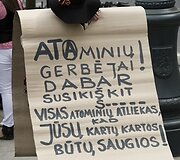 ATOMINIŲ
GERBĖJAI!
DABAR
SUSIKIŠKIT
Š-----
VISAS ATOMINES ATLIEKAS,
KAD
JŪSŲ, KARTŲ KARTOS
BŪTŲ, SAUGIOS!